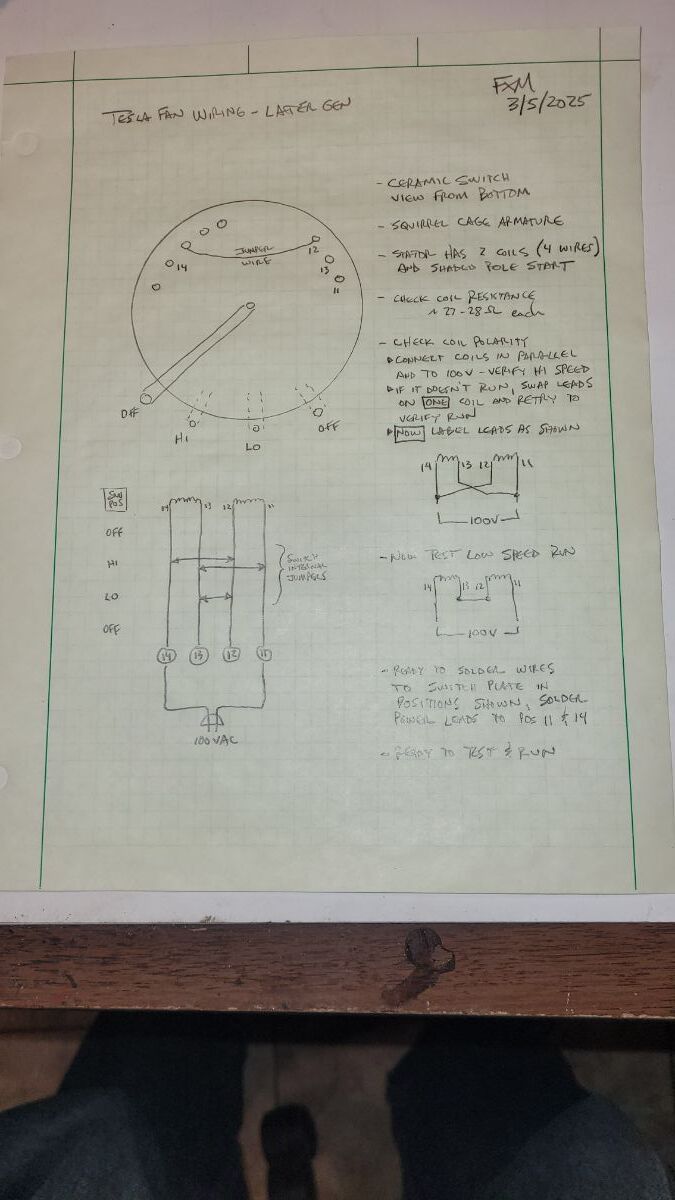 TESLA FAN WIRING - LATER GEN
FXM
3/5/2025
- CERAMIC SWITCH
VIEW FROM BOTTOM
- SQUIRREL CAGE ARMATURE
- STATOR HAS 2 COILS (4 WIRES)
AND SHADED POLE START
- CHECK COIL RESISTANCE
~ 27-28 Ω each
- CHECK COIL POLARITY
▸ CONNECT COILS IN PARALLEL
AND TO 100V - VERIFY HI SPEED
▸ IF IT DOESN'T RUN, SWAP LEADS
ON ONE COIL AND RETRY TO
VERIFY RUN
▸ NOW LABEL LEADS AS SHOWN
14 13 12 11
100V
- NOW TEST LOW SPEED RUN
14 13 12 11
100V
- READY TO SOLDER WIRES
TO SWITCH PLATE IN
POSITIONS SHOWN, SOLDER
POWER LEADS TO POS 11 & 14
- READY TO TEST & RUN
JUMPER
WIRE
14
12
13
11
OFF
HI
LO
OFF
SW
POS
14 13 12 11
OFF
HI
LO
OFF
SWITCH
INTERNAL
JUMPERS
14 13 12 11
100VAC